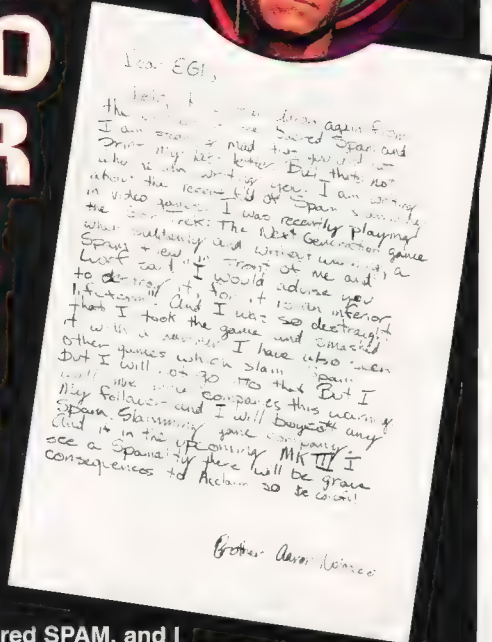 O
R
Dear EGM,
again from
the Sacred Spam and
I am mad that you did not
print my last letter But thats not
why I am writing you. I am writing
about the recent of Spam slamming
in video games. I was recently playing
the Star Trek: The Next Generation game
when suddenly and without warning a
Spam flew in front of me and
Worf said "I would advise you
to destroy it, for it is an inferior
lifeform" And I was so destraught
that I took the game and smashed
it with a hammer I have also seen
other games which slam Spam
But I will not go into that But I
will give companies this warning
My followers and I will boycott any
Spam Slamming game company.
And if in the upcoming MK III I
see a Spamality there will be grave
consequences to Acclaim so be careful!
Brother Aaron
red SPAM, and I